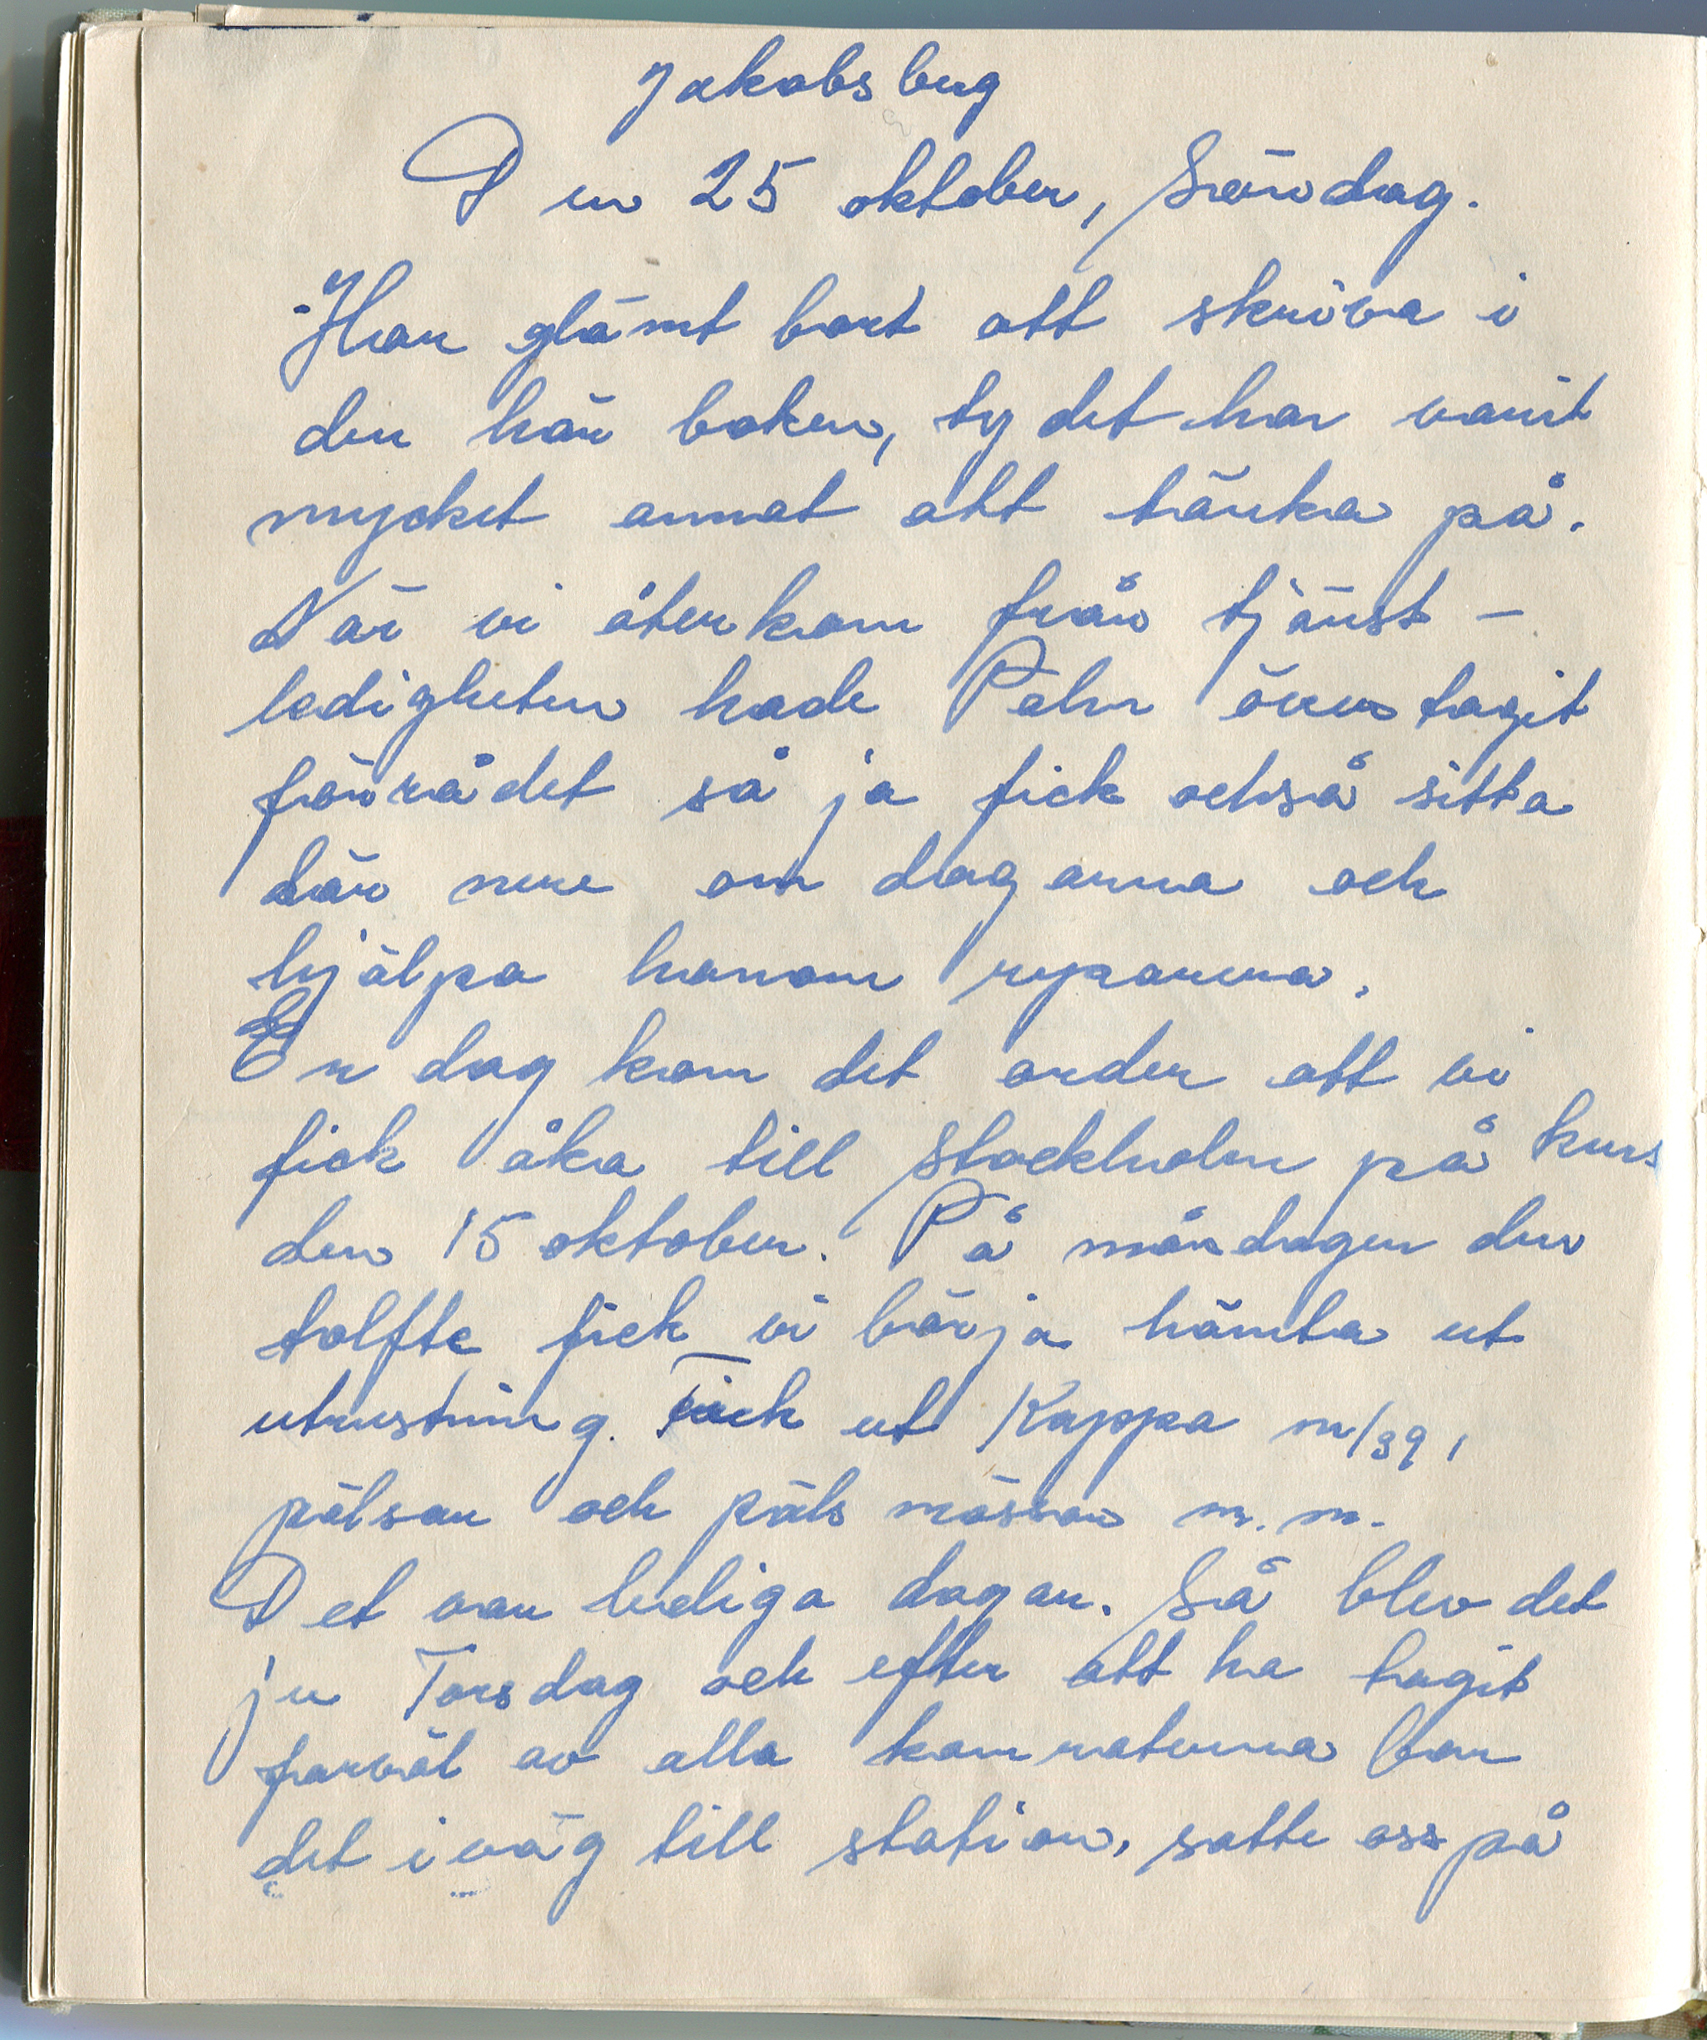 Jakobsberg
Den 25 oktober, Söndag.
Har glömt bort att skriva i
den här boken, ty det har varit
mycket annat att tänka på.
När vi återkom från tjänst-
ledigheten hade Palm övertagit
förrådet så ja fick också sitta
där nere om dagarna och
hjälpa honom rypoarna.
En dag kom det order att vi
fick åka till Stockholm på kurs
den 15 oktober. På måndagen den
tolfte fick vi börja hämta ut
utrustning. Fick ut Kappa m/39,
pälsar och päls mössor m.m.
Det var lediga dagar. Så blev det
ju Torsdag och efter att ha tagit
farväl av alla kamraterna bar
det iväg till station, satte oss på